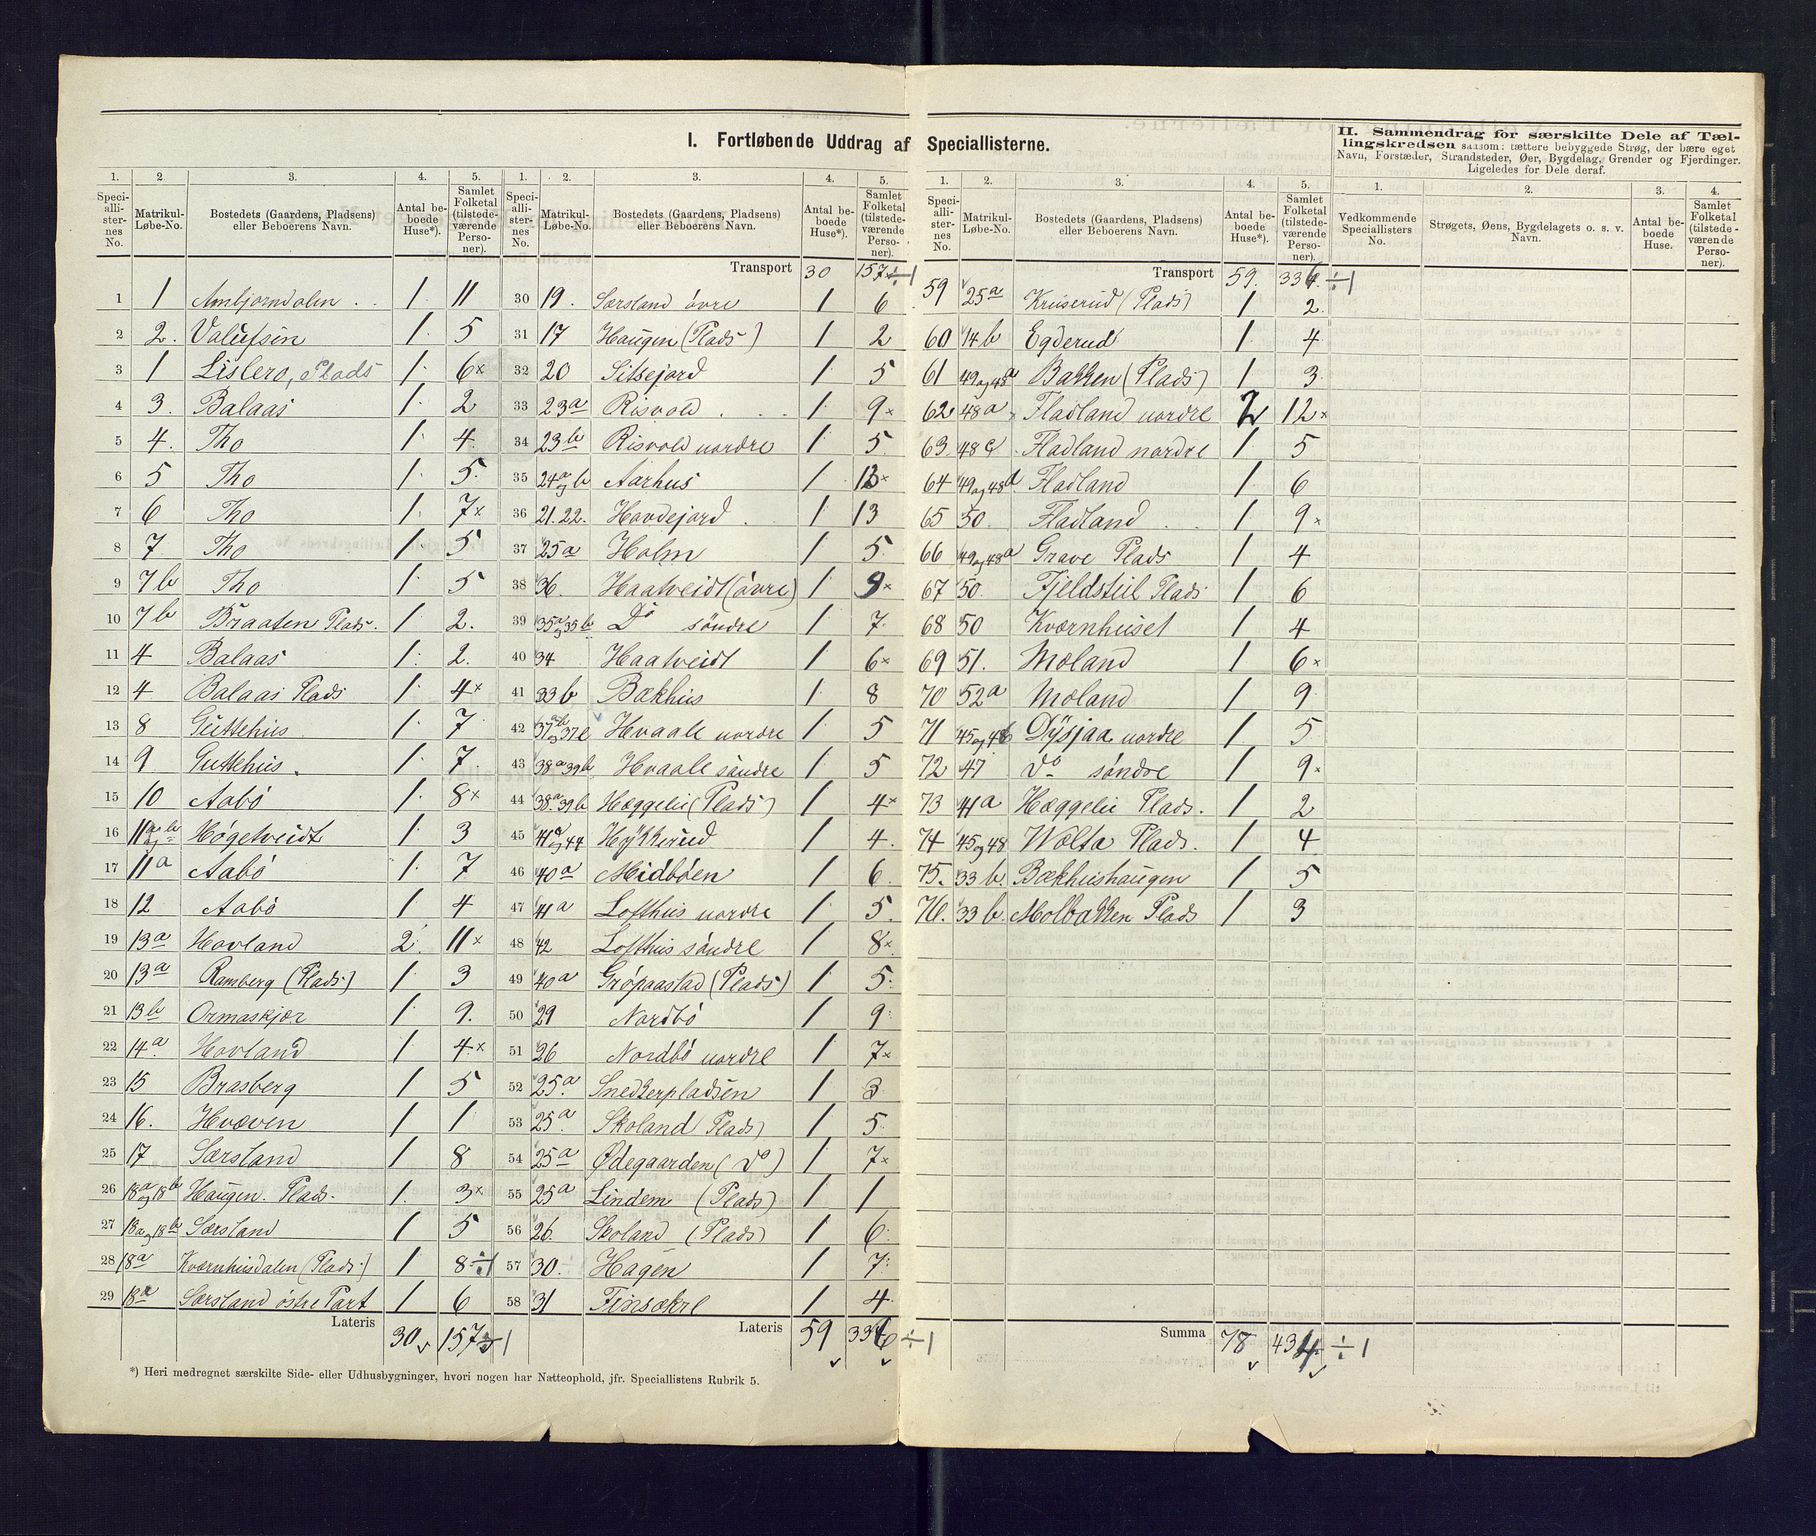 I. Fortløbende Uddrag af Speciallisterne.
1. Speciallisternes No. | 2. Matrikul-Løbe-No. | 3. Bostedets (Gaardens, Pladsens) eller Beboerens Navn. | 4. Antal beboede Huse*). | 5. Samlet Folketal (tilstedeværende Personer).
1 | 1 | Ambjorndalen | 1 | 11
2 | 2. | Valufsin | 1 | 5
3 | 1 | Lislero, Plads | 1 | 6x
4 | 3. | Balaas | 1 | 2
5 | 4. | Tho | 1 | 4
6 | 5 | Tho | 1 | 5.
7 | 6 | Tho | 1 | 7x
8 | 7 | Tho | 1 | 5
9 | 7b | Tho | 1 | 5
10 | 7b | Braaten Plads. | 1 | 2.
11 | 4 | Balaas | 1 | 2.
12 | 4 | Balaas Plads | 1 | 4x
13 | 8 | Guttehus | 1 | 7
14 | 9 | Guttehus. | 1 | 7.
15 | 10 | Aabö | 1 | 8x
16 | 11a og b | Høgetveidt | 1 | 3
17 | 11a | Aabö | 1 | 7
18 | 12 | Aabö | 1 | 4
19 | 13a | Hovland | 2 | 11x
20 | 13a | Ramberg (Plads) | 1 | 3
21 | 13b | Ormaskjær | 1 | 9.
22 | 14a. | Hovland | 1 | 4x
23 | 15 | Brasberg | 1 | 5
24 | 16. | Hvæven | 1 | 1
25 | 17 | Særsland | 1 | 8
26 | 18a og 18b | Haugen. Plads. | 1 | 3x
27 | 18a og 18b | Særsland | 1 | 5
28 | 18a | Kværnhusdalen (Plads) | 1 | 8÷1
29 | 18a | Særsland östre Part | 1 | 6
Lateris | 30 | 157÷1
*) Heri medregnet særskilte Side- eller Udhusbygninger, hvori nogen har Natteophold, jfr. Speciallistens Rubrik 5.
1. Speciallisternes No. | 2. Matrikul-Løbe-No. | 3. Bostedets (Gaardens, Pladsens) eller Beboerens Navn. | 4. Antal beboede Huse*). | 5. Samlet Folketal (tilstedeværende Personer).
Transport | 30 | 157÷1
30 | 19. | Særsland övre | 1 | 6
31 | 17 | Haugen (Plads) | 1 | 2
32 | 20 | Sitsejord | 1 | 5
33 | 23a | Risvold | 1 | 9x
34 | 23b | Risvold nordre | 1 | 5
35 | 24a og b | Aarhus | 1 | 13x
36 | 21.22. | Hovdejord | 1 | 13
37 | 25a | Holm | 1 | 5.
38 | 36. | Haatveidt (övre) | 1 | 9x
39 | 35a og 35b | Do söndre | 1 | 7.
40 | 34 | Haatveidt | 1 | 6x
41 | 33b | Bækhus | 1 | 8
42 | 37ab og 37c | Hvaale nordre | 1 | 5
43 | 38a 39b | Hvaale söndre | 1 | 5
44 | 38a 39b | Hæggelii (Plads) | 1 | 4x
45 | 41d og 44 | Hykkerud | 1 | 4.
46 | 40a | Midböen | 1 | 6.
47 | 41a | Lofthus nordre | 1 | 5.
48 | 42 | Lofthus söndre | 1 | 8x
49 | 40a | Gröpaastad (Plads) | 1 | 5.
50 | 29 | Nordbö | 1 | 9
51 | 26 | Nordbö nordre | 1 | 7x
52 | 25a. | Snedkerpladsen | 1 | 3
53 | 25a. | Skoland Plads | 1 | 5
54 | 25a | Ødegaarden (Do) | 1 | 7x
55 | 25a | Lindem (Plads) | 1 | 1
56 | 26. | Skoland (Plads) | 1 | 6
57 | 30. | Hagen | 1 | 7
58 | 31 | Finsækre | 1 | 4
Lateris | 59 | 336÷1
1. Speciallisternes No. | 2. Matrikul-Løbe-No. | 3. Bostedets (Gaardens, Pladsens) eller Beboerens Navn. | 4. Antal beboede Huse*). | 5. Samlet Folketal (tilstedeværende Personer).
Transport | 59. | 336÷1
59 | 25a | Kruserud (Plads) | 1 | 2
60 | 14b | Egderud | 1 | 4
61 | 49 og 48a | Bakken (Plads) | 1 | 3
62 | 48a | Fladland nordre | 2 | 12x
63. | 48c | Fladland nordre | 1 | 5
64 | 49 og 48d | Fladland | 1 | 6
65 | 50. | Fladland | 1 | 9x
66 | 49 og 48a | Grave Plads | 1 | 4
67 | 50. | Fjeldstul Plads | 1 | 6
68 | 50 | Kværnhuset | 1 | 4
69 | 51. | Moland | 1 | 6x
70 | 52a | Moland | 1 | 9
71 | 45 og 46 | Dysjaa nordre | 1 | 5
72 | 47 | Do söndre | 1 | 9x
73 | 41a | Hæggelii Plads. | 1 | 2
74 | 45 og 48 | Wolta Plads. | 1 | 4
75. | 33b. | Bækhushaugen | 1 | 5
76. | 33b. | Molbakken Plads | 1 | 3
Summa | 78 | 434÷1
II. Sammendrag for særskilte Dele af Tællingskredsen saasom: tættere bebyggede Strøg, der bære eget Navn, Forstæder, Strandsteder, Øer, Bygdelag, Grender og Fjerdinger. Ligeledes for Dele deraf.
1. Vedkommende Speciallisters No. | 2. Strøgets, Øens, Bygdelagets o. s. v. Navn. | 3. Antal beboede Huse. | 4. Samlet Folketal (tilstedeværende Personer).